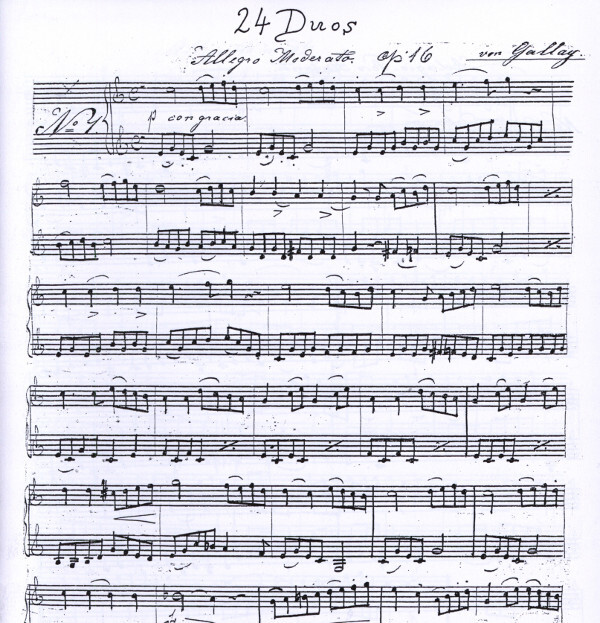 24 Duos
Allegro Moderato. Op 16 von Gallay.
No 1
p con gracia